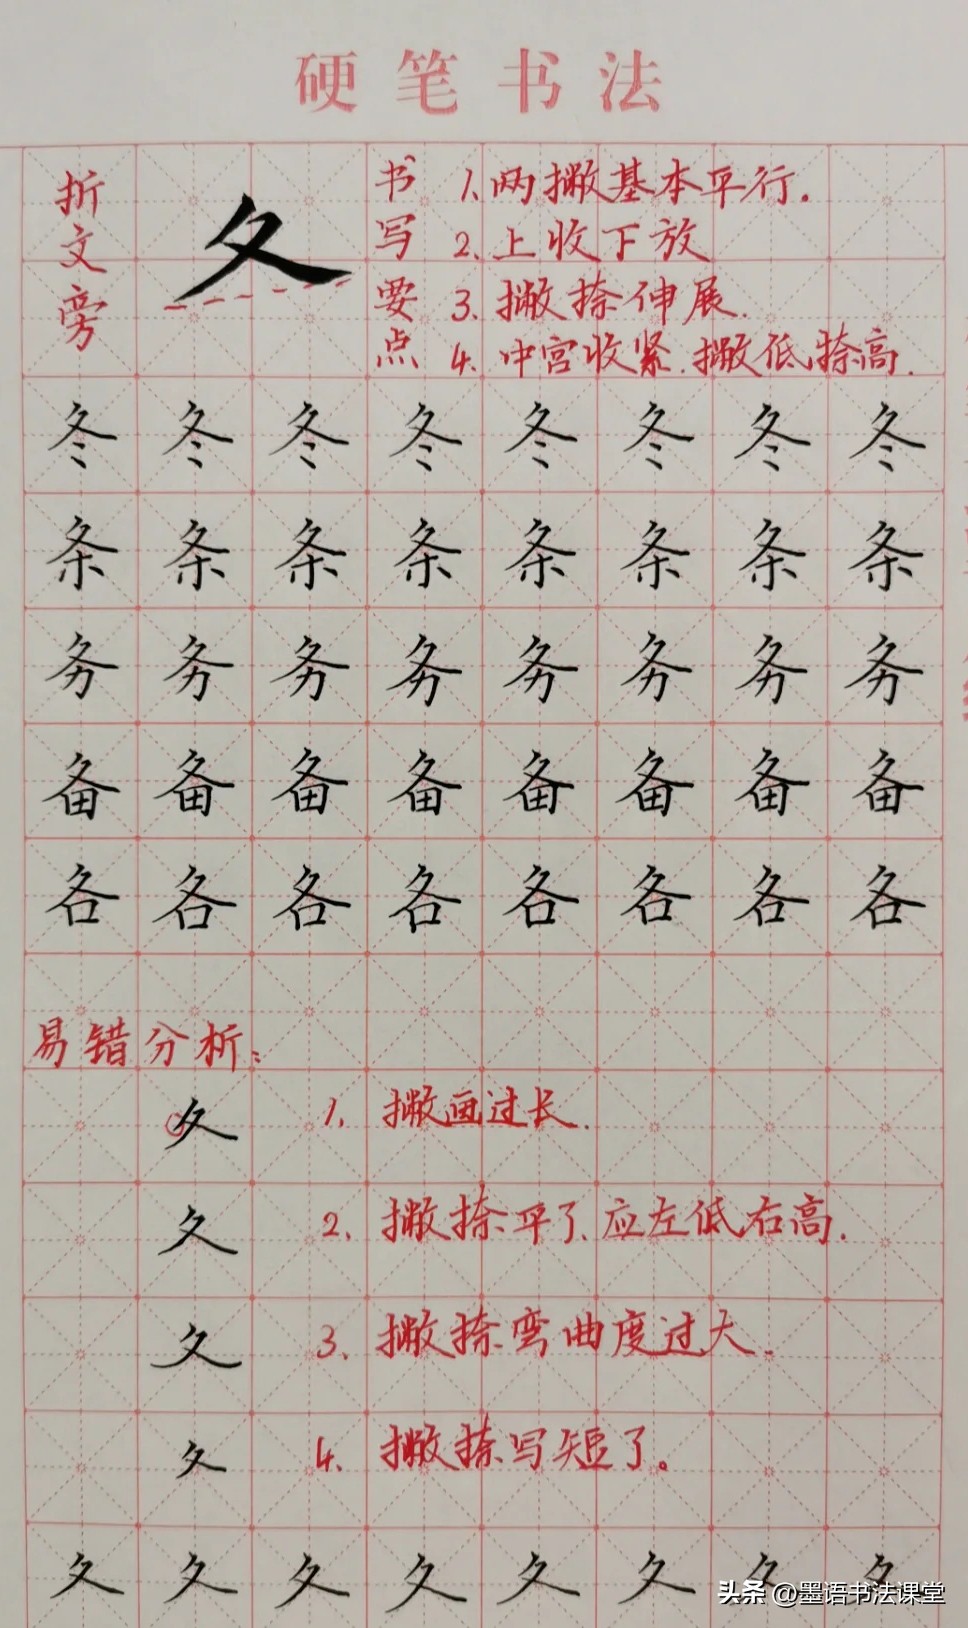 硬笔书法
折文旁
夂
书写要点
1、两撇基本平行.
2、上收下放
3、撇捺伸展.
4、中宫收紧.撇低捺高.
冬冬冬冬冬冬冬冬
条条条条条条条条
务务务务务务务务
备备备备备备备备
各各各各各各各各
易错分析:
夂 1、撇画过长.
夂 2、撇捺平了、应左低右高.
夂 3、撇捺弯曲度过大.
夂 4、撇捺写短了。
夂夂夂夂夂夂夂夂
头条 @墨语书法课堂